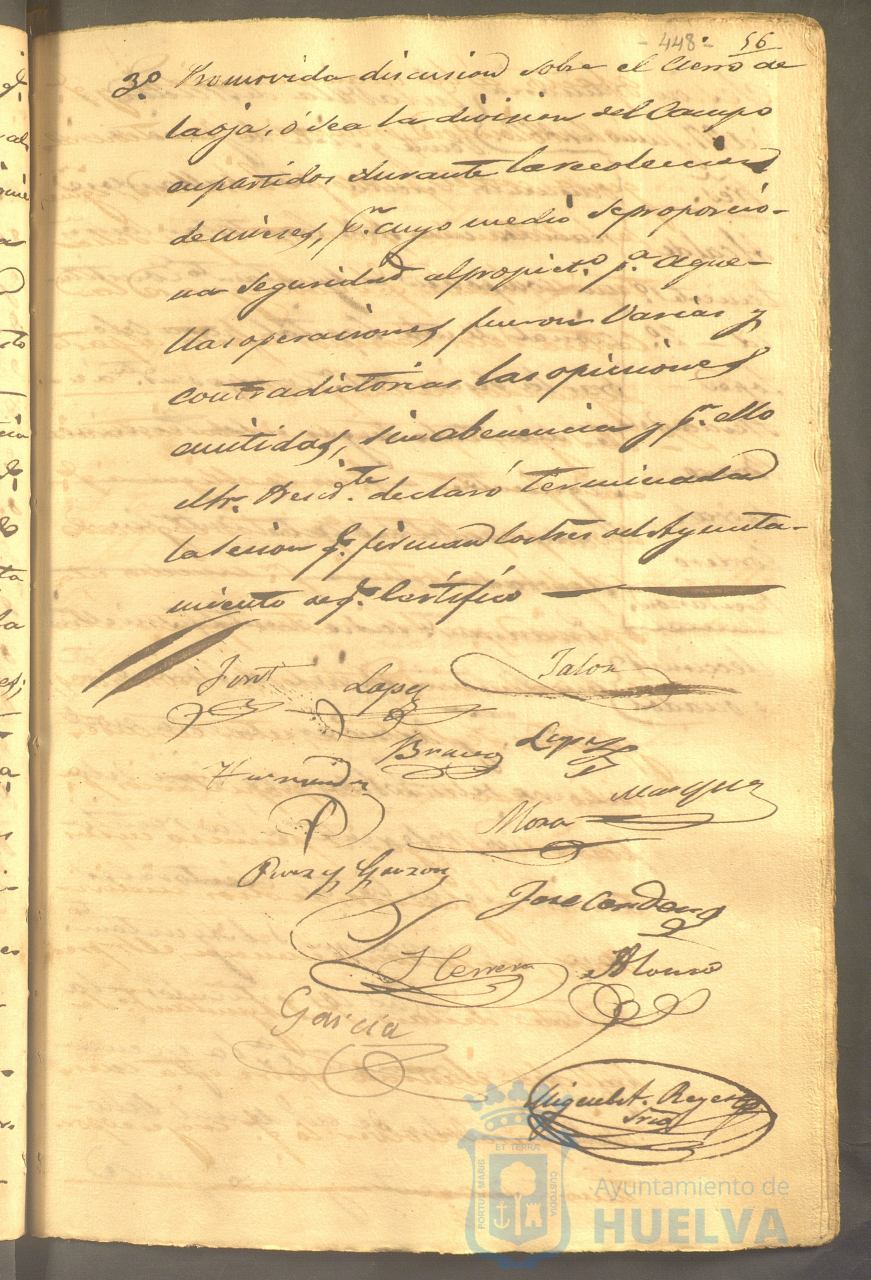 - 448 - 56
3º. Promovida discusion sobre el Cierro de
la oja, ó sea la division del Campo
en partidos durante la recoleccion
de mieses, pr. cuyo medio se proporcio-
na seguridad al propietº. pª. aque-
llas operaciones, fueron varias y
contradictorias las opiniones
emitidas, sin abenencia y pr. ello
el Sr. Presidte. declaró terminada
la sesion q. firman los Sres. del Ayunta-
miento de q. Certifico
Font Lopez Jalon
Hernandez Bravo Lopez
Mora Marquez
Perez y Garzon
Jose Cordero
Herrera Alonso
Garcia
Miguel A. Reyes
Srio
PORTUS MARIS ET TERRÆ CUSTODIA
Ayuntamiento de
HUELVA